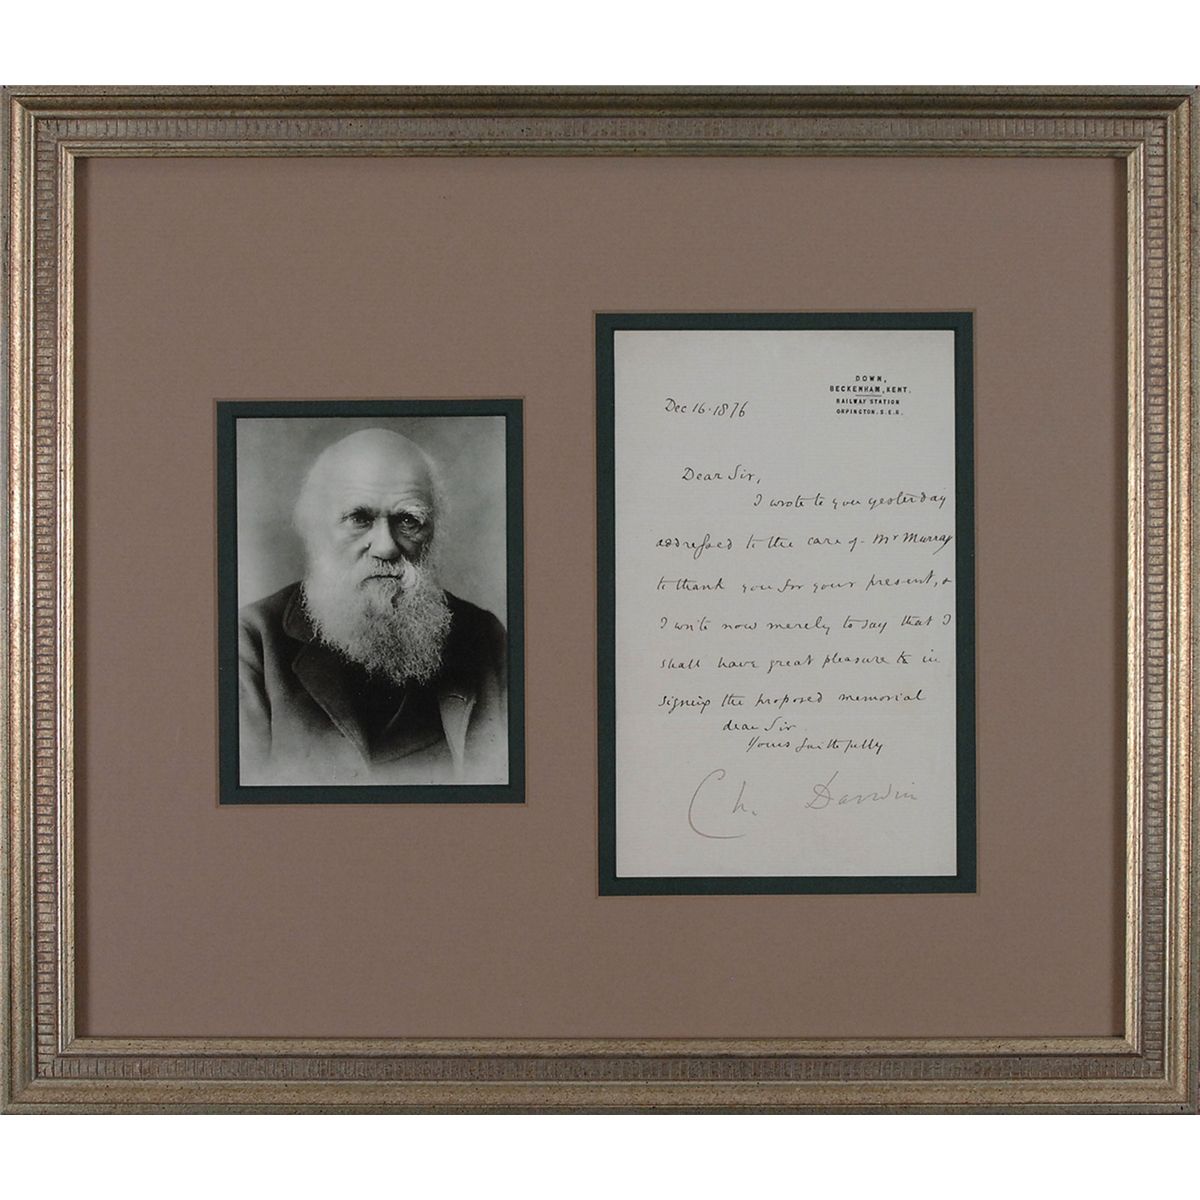 DOWN,
BECKENHAM, KENT.
RAILWAY STATION
ORPINGTON. S.E.R.
Dec 16. 1876
Dear Sir,
I wrote to you yesterday
addressed to the care of Mr Murray
to thank you for your present, &
I write now merely to say that I
shall have great pleasure to in
signing the proposed memorial
dear Sir
Yours faithfully
Ch. Darwin